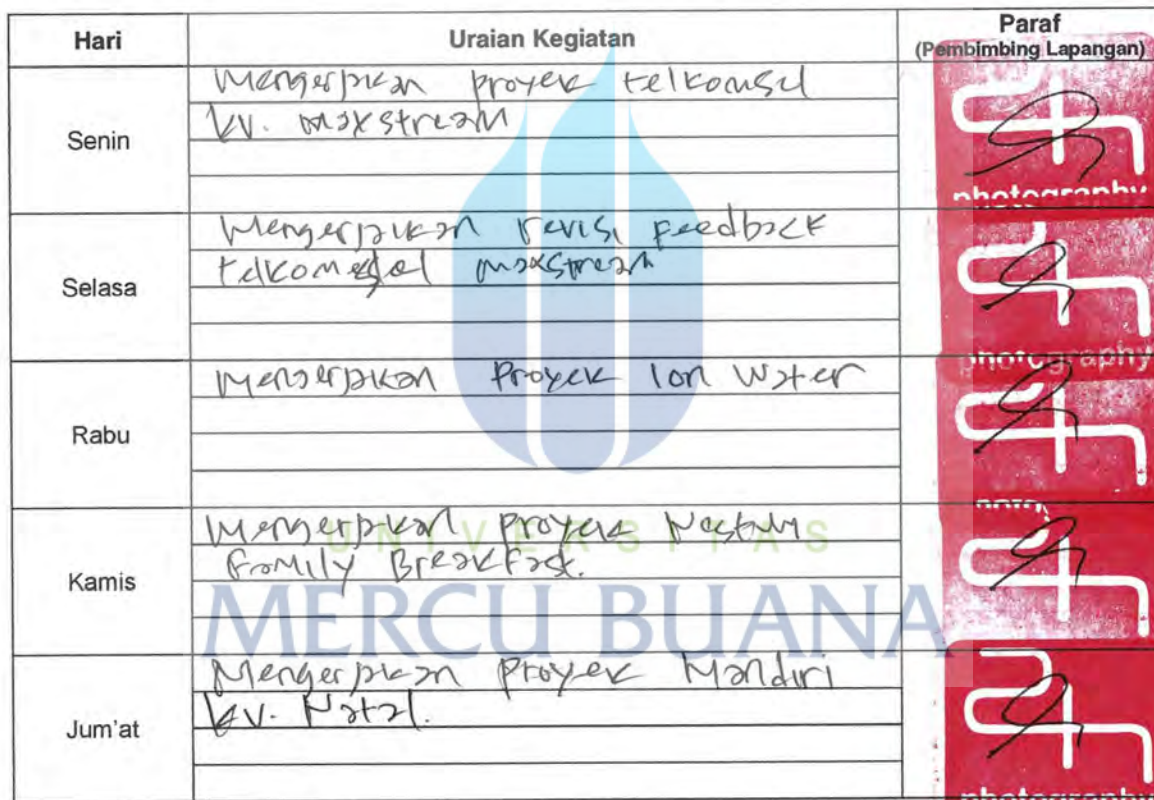 Hari Uraian Kegiatan Paraf
(Pembimbing Lapangan)
Senin
Mengerjakan proyek telkomsel
kv. maxstream
photography
Selasa
Mengerjakan revisi feedback
telkomsel maxstream
photography
Rabu
Mengerjakan Proyek Ion Water
Kamis
Mengerjakan Proyek
Family Breakfast.
UNIVERSITAS
MERCU BUANA
Jum'at
Mengerjakan Proyek Mandiri
kv. Natal.
photography